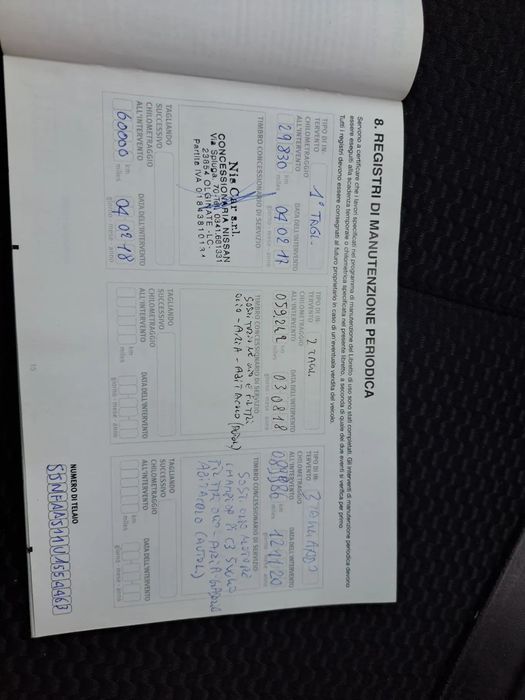 8. REGISTRI DI MANUTENZIONE PERIODICA
Servono a certificare che i lavori specificati nel programma di manutenzione del Libretto di uso sono stati completati. Gli interventi di manutenzione periodica devono
essere eseguiti alla scadenza temporale o chilometrica specificata nel presente libretto, a seconda di quale dei due eventi si verifica per primo.
Tutti i registri devono essere consegnati al futuro proprietario in caso di un eventuale vendita del veicolo.
TIPO DI IN-
TERVENTO 1° TAGL.
CHILOMETRAGGIO
ALL'INTERVENTO
DATA DELL'INTERVENTO
29830 km
miles
04 08 17
giorno mese anno
TIMBRO CONCESSIONARIO DI SERVIZIO
Nis Car s.r.l.
CONCESSIONARIA NISSAN
Via Spluga, 70 - Tel. 0341.681331
23854 OLGINATE - LC
Partita IVA
TAGLIANDO
SUCCESSIVO
CHILOMETRAGGIO
ALL'INTERVENTO
DATA DELL'INTERVENTO
60000 km
miles
04 08 18
giorno mese anno
TIPO DI IN-
TERVENTO 2 TAGL.
CHILOMETRAGGIO
ALL'INTERVENTO
DATA DELL'INTERVENTO
059242 km
miles
03 08 18
giorno mese anno
TIMBRO CONCESSIONARIO DI SERVIZIO
OLIO - ARIA - ABITACOLO
TAGLIANDO
SUCCESSIVO
CHILOMETRAGGIO
ALL'INTERVENTO
DATA DELL'INTERVENTO
km
miles
giorno mese anno
TIPO DI IN-
TERVENTO 3 TAGLIANDO
CHILOMETRAGGIO
ALL'INTERVENTO
DATA DELL'INTERVENTO
miles
12 11 20
giorno mese anno
TIMBRO CONCESSIONARIO DI SERVIZIO
SOST. OLIO MOTORE
5W30
OLIO - ARIA
ABITACOLO
TAGLIANDO
SUCCESSIVO
CHILOMETRAGGIO
ALL'INTERVENTO
DATA DELL'INTERVENTO
km
miles
giorno mese anno
NUMERO DI TELAIO
15